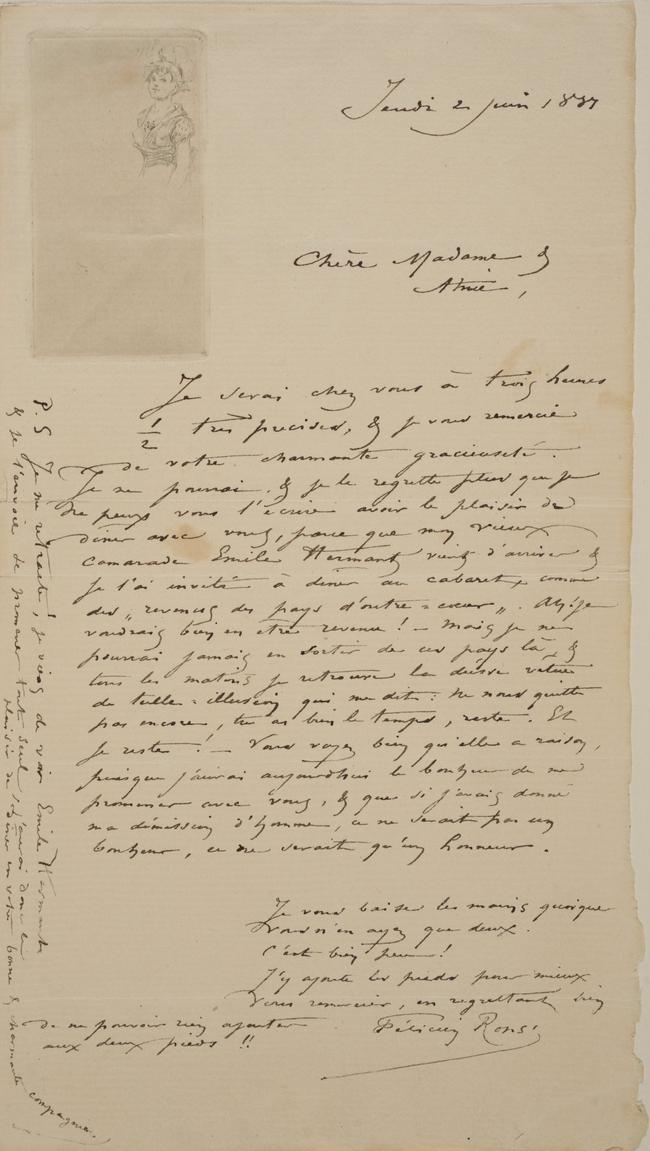 Jeudi 2 juin 1887
Chère Madame &
Amie,
Je serai chez vous à trois heures
1/2 très précises, & je vous remercie
de votre charmante gracieuseté.
Je ne pourrai & je le regrette plus que je
ne peux vous l'écrire avoir le plaisir de
dîner avec vous, parce que mon vieux
camarade Emile Hermant vient d'arriver &
je l'ai invité à diner au cabaret, comme
des „ revenus des pays d'outre=cœur „. Ah! je
voudrais bien en être revenu! – Mais je ne
pourrai jamais en sortir de ces pays là, &
tous les matins je retrouve la déesse vêtue
de tulle=illusion qui me dit: Ne nous quitte
pas encore, tu as bien le temps, reste. Et
je reste! – Vous voyez bien qu'elle a raison,
puisque j'aurai aujourdhui le bonheur de me
promener avec vous, & que si j'avais donné
ma démission d'homme, ce ne serait pas un
bonheur, ce ne serait qu'un honneur.
Je vous baise les mains quoique
vous n'en ayez que deux.
C'est bien peu!
J'y ajoute les pieds pour mieux
vous remercier, en regrettant bien
de ne pouvoir rien ajouter
aux deux pieds!!
Félicien Rops
P.S Je me rétracte! je viens de voir Emile Hermant
& je l'envoie se promener tout seul, j'aurai donc le
plaisir de dîner en votre bonne & charmante compagnie.